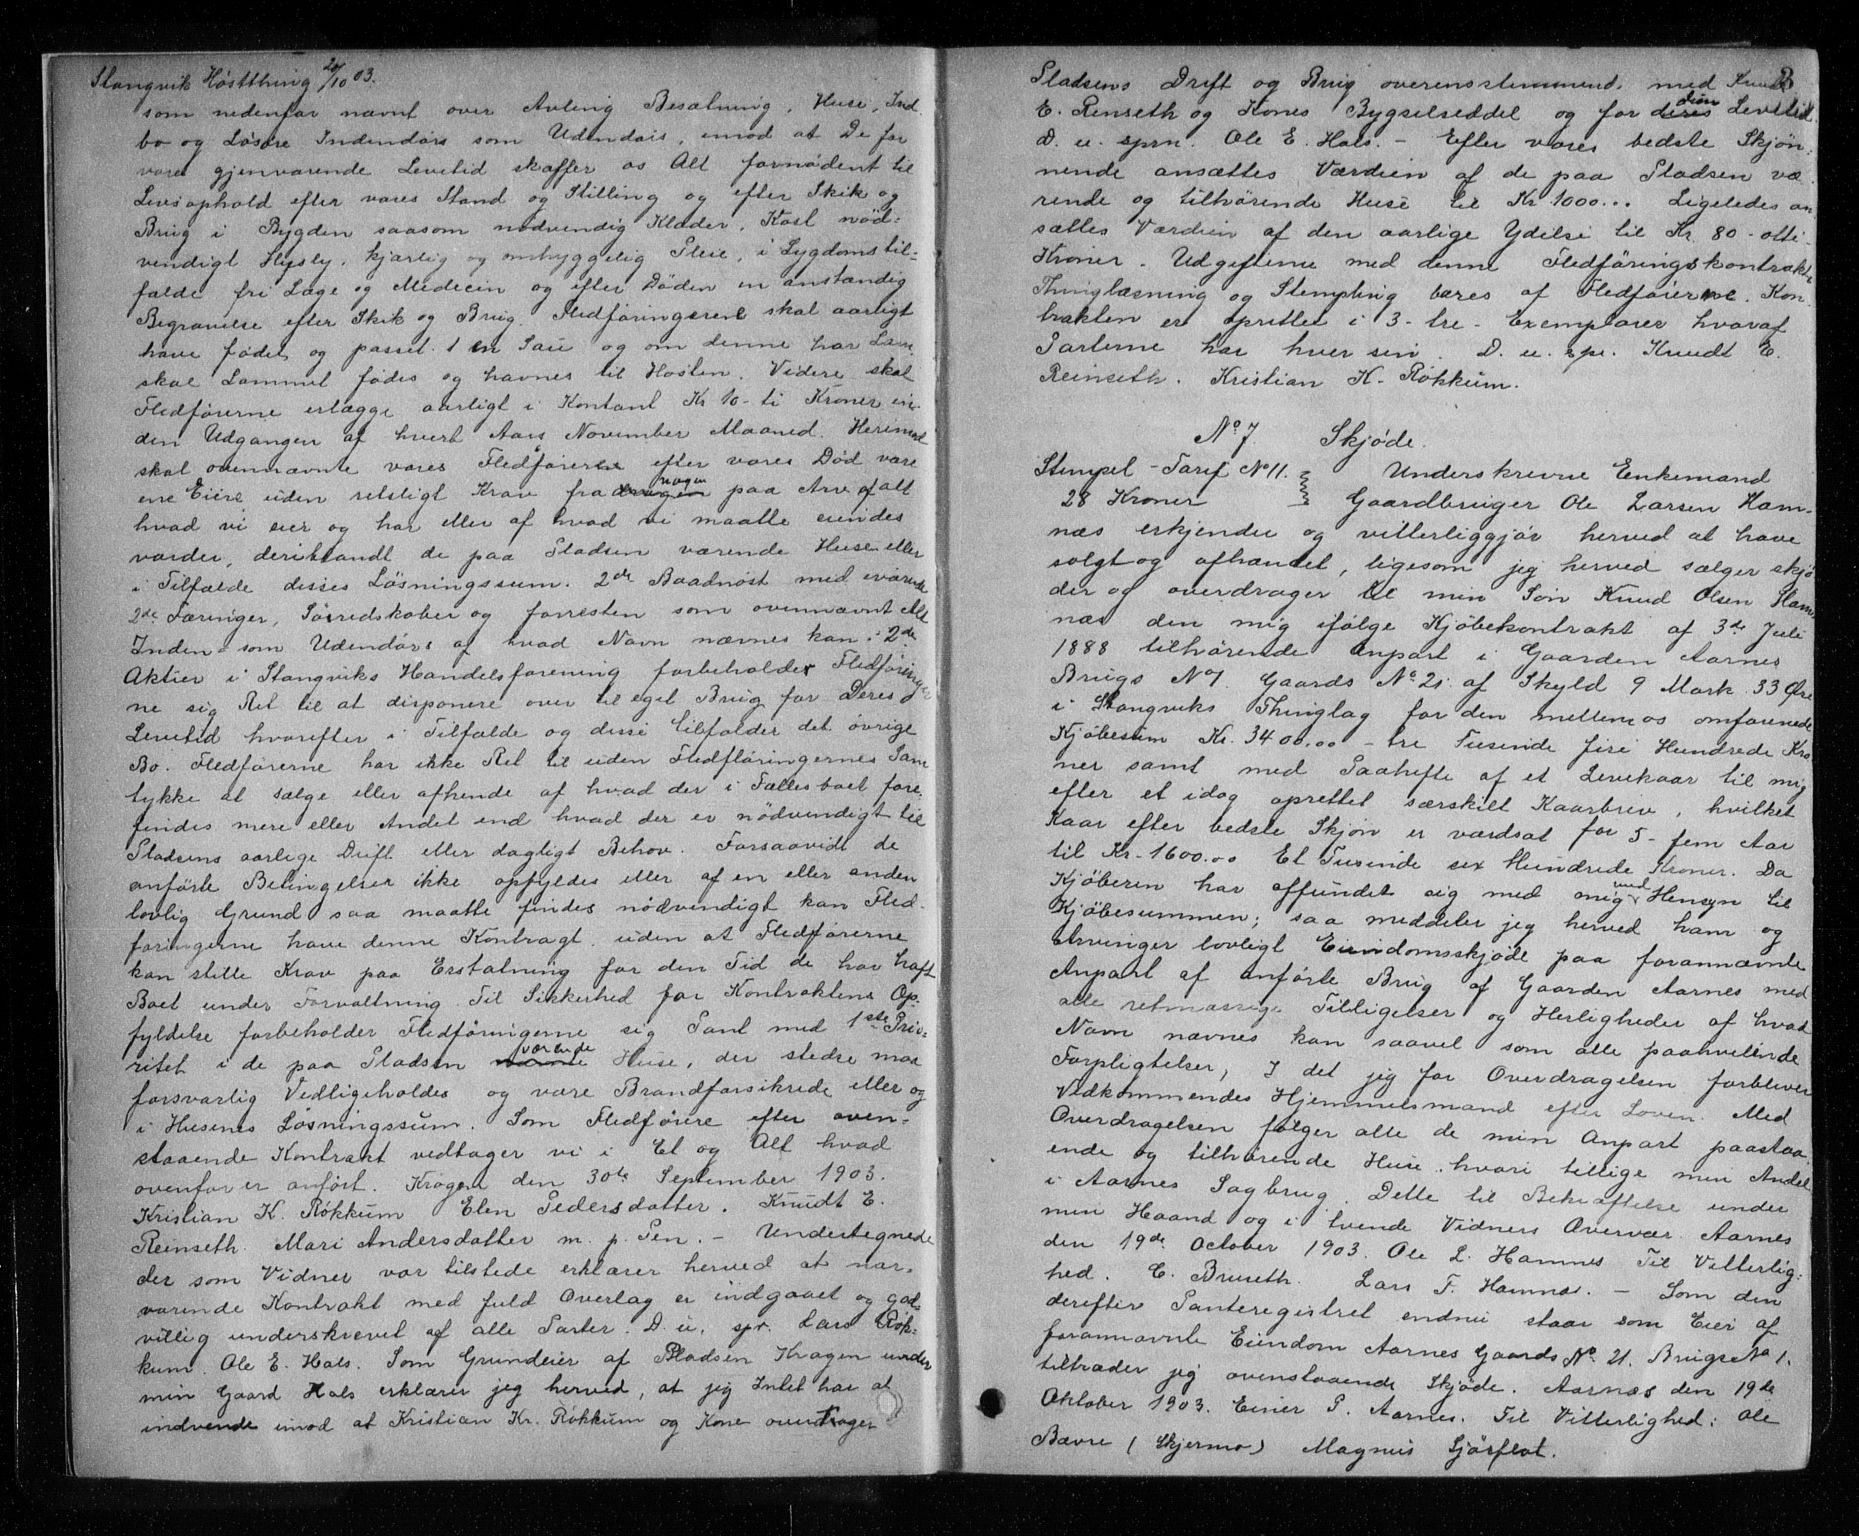 Stangvik Høstthing 20/10 03.
som nedenfor nævnt over Avling Besætning, Huse, Ind
bo og Løsøre Indendørs som Udendørs, imod at De for
vores gjenværende Levetid skaffer os Alt fornødent til
Livsophold efter vores Stand og Stilling og efter Skik og
Brug i Bygden saasom nødvendig Klæder, Kost nød-
vendigt Huslÿ, kjærlig og omhyggelig Pleie, i Sygdomstil-
fælde fri Læge og Medecin og efter Døden en anstændig
Begravelse efter Skik og Brug. Fledføringerne skal aarligt
have fødet og passet 1 en Sau og om denne har Lam
skal Lammet fødes og havnes til Høsten. Videre skal
Fledførerne erlægge aarligt i Kontant Kr 10- ti Kroner in-
den Udgangen af hvert Aars November Maaned. Herimod
skal ovennævnte vores Fledførere efter vores Død være
ene Eiere uden retsligt Krav fra nogen paa Arv af alt
hvad vi eier og har eller af hvad vi maatte eiendes
vorder, deriblandt de paa Pladsen værende Huse eller
i Tilfælde disses Løsningssum. 2de Baadnøst med iværende
2de Færinger, Søredskaber og forresten som ovennævnt Alt
Inden- som Udendørs af hvad Navn nævnes kan. 2de
Aktier i Stangviks Handelsforening forbeholder Fledføringer
ne sig Ret til at disponere over til eget Brug for Deres
Levetid hvorefter i Tilfælde og disse tilfalder det øvrige
Bo. Fledførerne har ikke Ret til uden Fledføringernes Sam
tykke at sælge eller afhende af hvad der i Fællesboet fore
findes mere eller Andet end hvad der er nødvendigt til
Pladsens aarlige Drift eller dagligt Behov. Forsaavidt de
anførte Betingelser ikke opfyldes eller af en eller anden
lovlig Grund saa maatte findes nødvendigt kan Fled-
føringerne hæve denne Kontragt uden at Fledførerne
kan stille Krav paa Erstatning for den Tid de har haft
Boet under Forvaltning. Til Sikkerhed for Kontraktens Op-
fyldelse forbeholder Fledføringerne sig Pant med 1ste Prio-
ritet i de paa Pladsen værende Huse, der stedse maa
forsvarlig Vedligeholdes og være Brandforsikrede eller og
i Husenes Løsningssum. Som Fledførere efter oven-
staaende Kontrakt vedtager vi i Et og Alt hvad
ovenfor er anført. Krogen den 30te September 1903.
Kristian K. Røkkum Elen Pedersdatter. Knudt E.
Reinseth. Mari Andersdatter m. p. Pen. – Undertegnede
der som Vidner var tilstede erklærer herved at nær-
værende Kontrakt med fuld Overlag er indgaaet og god-
villig underskrevet af alle Parter. D. u. spr. Lars Røk-
kum. Ole E. Hals. Som Grundeier af Pladsen Krogen under
min Gaard Hals erklærer jeg herved, at jeg Intet har at
indvende imod at Kristian Kr. Røkkum og Kone overtager
Pladsens Drift og Brug overensstemmend. med Knud
E. Renseth og Kones Bygselseddel og for deres Levetid
D. u. sprn. Ole E. Hals. – Efter vores bedste Skjøn-
nende ansættes Værdien af de paa Pladsen væ
rende og tilhørende Huse til Kr 1000... Ligeledes an
sættes Værdien af den aarlige Ydelse til Kr. 80 - otti
Kroner. Udgifterne med denne Fledføringskontrakts
Thinglæsning og Stempling bæres af Fledførerne. Kon-
trakten er oprettet i 3- tre- Exemplarer hvoraf
Parterne har hver sin. D. u. spr. Knudt E.
Reinseth. Kristian K. Røkkum.
No 7. Skjøde.
Stempel-Tarif No 11. Underskrevne Enkemand
28 Kroner Gaardbruger Ole Larsen Ham-
næs erkjender og vitterliggjør herved at have
solgt og afhændet, ligesom jeg herved sælger skjø
der og overdrager til min Søn Knud Olsen Ham
næs den mig ifølge Kjøbekontrakt af 3de Juli
1888 tilhørende Anpart i Gaarden Aarnes
Brugs No 1. Gaards No 21. af Skyld 9 Mark 33 Øre
i Stangviks Thinglag for den mellem os omforenede
Kjøbesum Kr. 3400,00 - tre Tusinde fire Hundrede Kro
ner samt med Paahefte af et Levekaar til mig
efter et idag oprettet særskilt Kaarbrev, hvilket
Kaar efter bedste Skjøn er værdsat for 5- fem Aar
til Kr. 1600.00 Et Tusinde sex Hundrede Kroner. Da
Kjøberen har affundet sig med mig med Hensyn til
Kjøbesummen; saa meddeler jeg herved ham og
Arvinger lovligt Eiendomsskjøde paa forannævnte
Anpart af anførte Brug af Gaarden Aarnes med
alle retmæssige Tilligelser og Herligheder af hvad
Navn nævnes kan saavel som alle paahvilende
Forpligtelser, I det jeg for Overdragelsen forbliver
Vedkommendes Hjemmelsmand efter Loven. Med
Overdragelsen følger alle de min Anpart paastaa-
ende og tilhørende Huse, hvori tillige min Andel
i Aarnes Sagbrug. Dette til Bekræftelse under
min Haand og i tvende Vidners Overvær. Aarnes
den 19de October 1903. Ole L. Hamnes Til Vitterlig-
hed. E. Bruseth. Lars T. Hamnæs. – Som den
derefter Panteregistret endnu staar som Eier af
forannævnte Eiendom Aarnes Gaards No. 21. Brugs No 1.
tiltræder jeg ovenstaaende Skjøde. Aarnæs den 19de
Oktober 1903. Einer P. Aarnes. Til Vitterlighed: Ole
Bævre (Skjermo) Magnus Sjøflot.